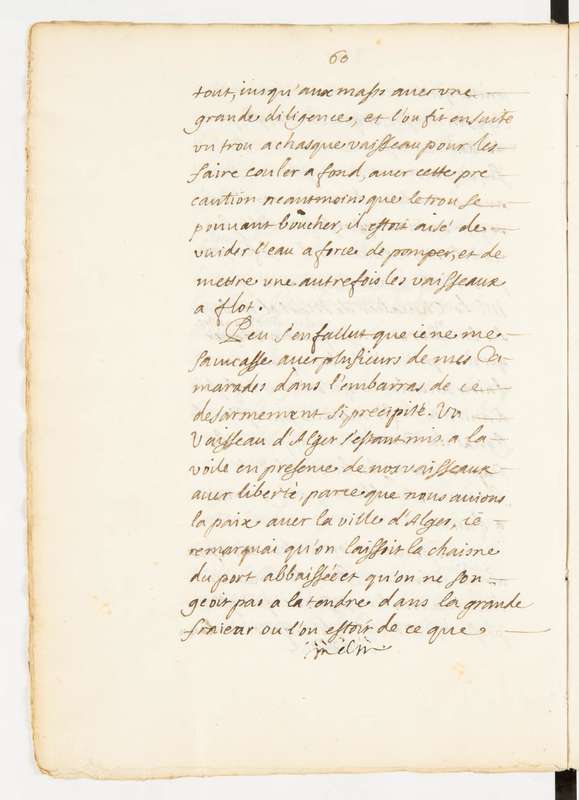 60
tout, iusqu'aux masts auec vne
grande diligence, et l'on fit ensuite
vn trou a chasque vaisseau pour les
faire couler a fond, auec cette pre
caution neantmoins que le trou se
pouuant boucher, il estoit aisé de
vuider l'eau a force de pomper, et de
mettre vne autrefois les vaisseaux
a flot.
Peu s'en fallut que ie ne me
sauuasse auec plusieurs de mes Ca
marades dans l'embarras de ce
desarmement si precipité. Vn
Vaisseau d'Alger s'estant mis a la
voile en presence de nos vaisseaux
auec liberté, parce que nous auions
la paix auec la ville d'Alger, ie
remarquai qu'on laissoit la chaisne
du port abbaissée et qu'on ne son
geoit pas a la tendre dans la grande
fraieur ou l'on estoit de ce que